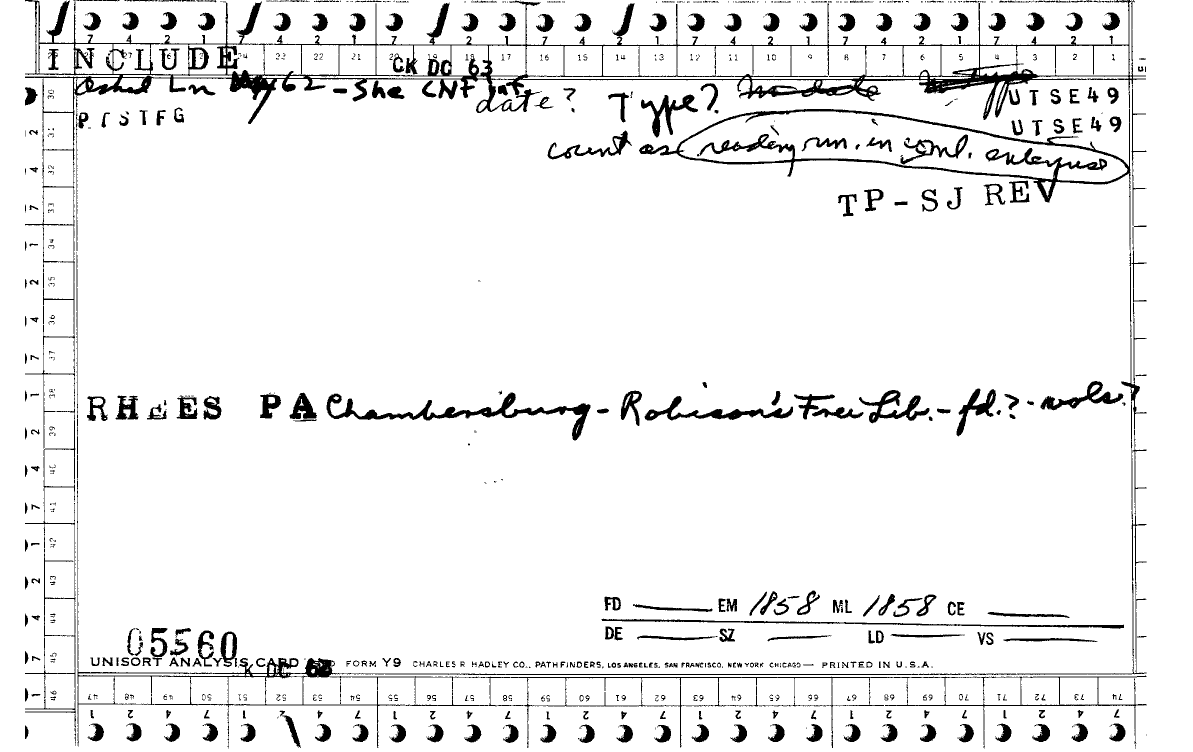 7 4 2 1 7 4 2 1 7 4 2 1 7 4 2 1 7 4 2 1 7 4 2 1 7 4 2 1
INCLUDE 24 23 22 21 20 19 18 17 16 15 14 13 12 11 10 9 8 7 6 5 4 3 2 1
CK DC 63
Asked Ln May 62 - She CNF inf.
date? Type? No date No Type
UTSE49
PTSTFG
UTSE49
count as reading rm. in coml. enterprise
TP-SJ REV
RHEES PA Chambersburg - Robison's Free Lib. - fd.? - vols.?
FD EM 1858 ML 1858 CE
DE SZ LD VS
05560
UNISORT ANALYSIS CARD FORM Y9 CHARLES R. HADLEY CO., PATHFINDERS, LOS ANGELES, SAN FRANCISCO, NEW YORK CHICAGO — PRINTED IN U.S.A.
K DC 62
47 48 49 50 51 52 53 54 55 56 57 58 59 60 61 62 63 64 65 66 67 68 69 70 71 72 73 74
1 2 4 7 1 2 4 7 1 2 4 7 1 2 4 7 1 2 4 7 1 2 4 7 1 2 4 7